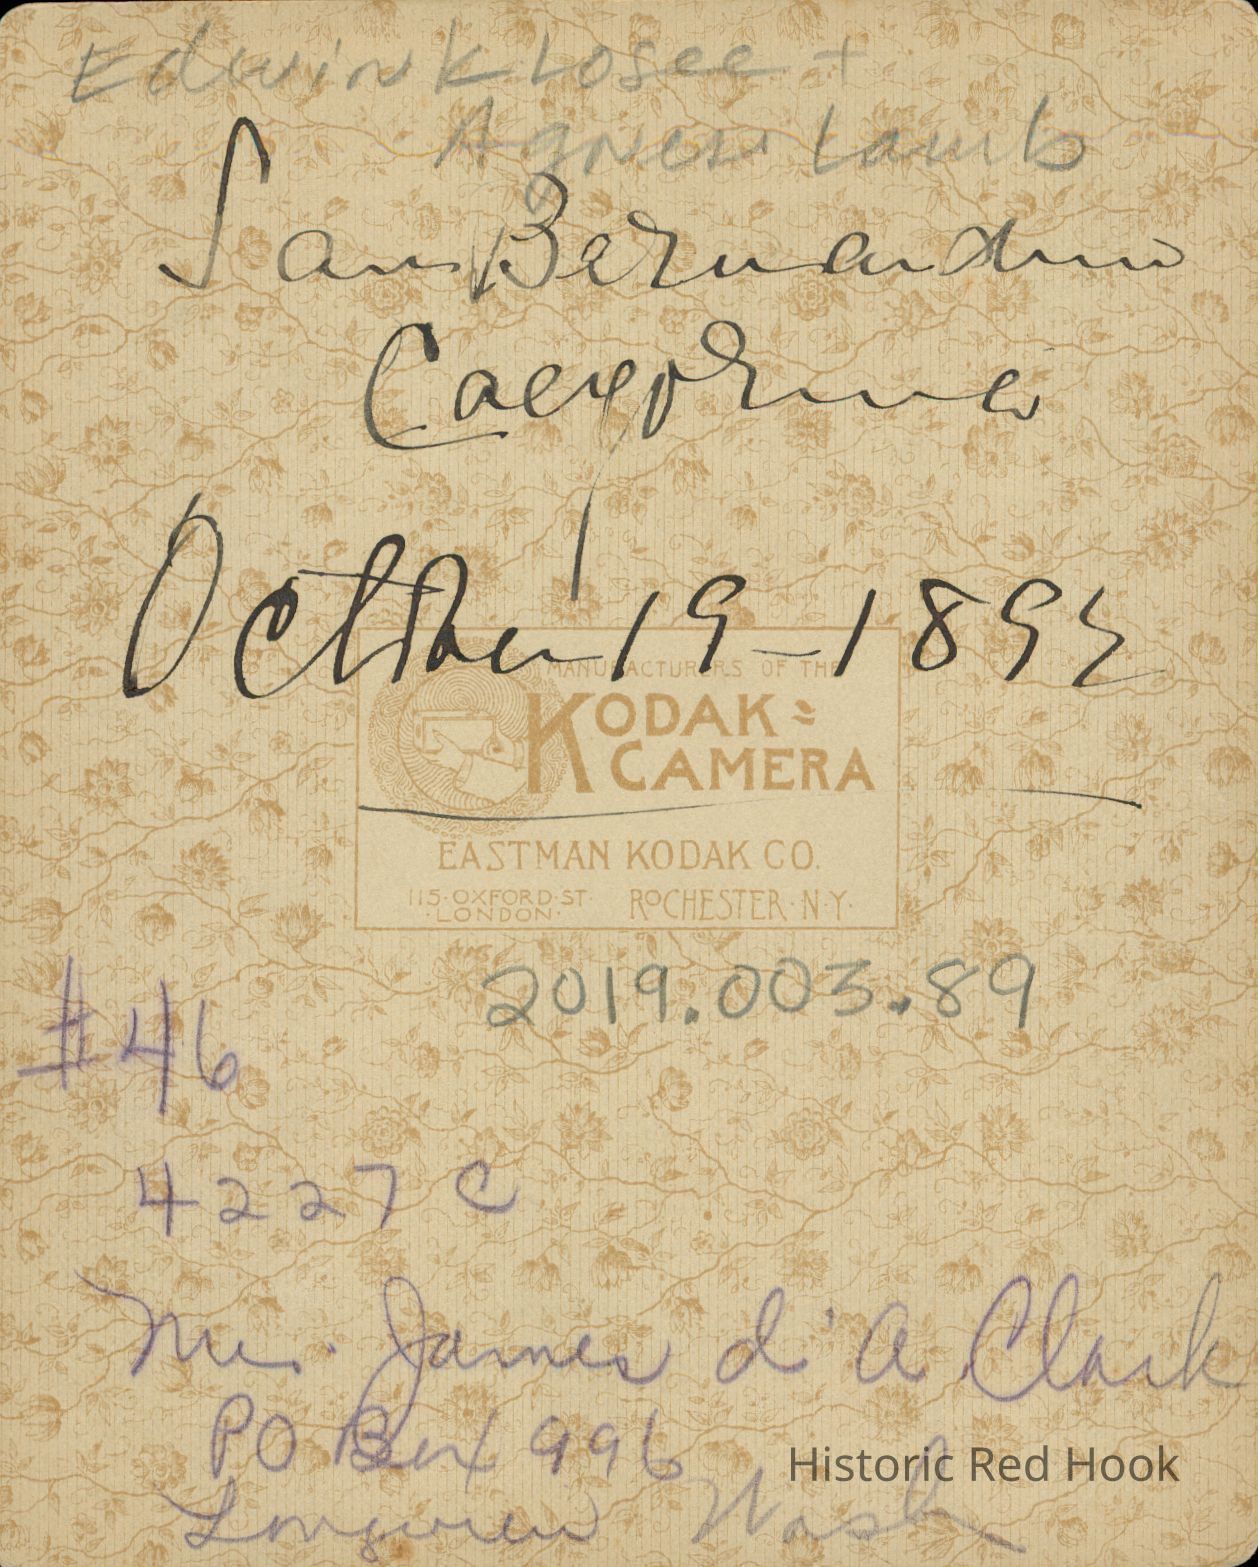 Edwin K Losee +
Agnes Lamb
San Bernardino
California
October 19-1892
MANUFACTURERS OF THE
KODAK
CAMERA
EASTMAN KODAK CO.
115·OXFORD·ST·
·LONDON·
ROCHESTER·N·Y·
2019.003.89
#46
4227 C
James d'A Clark
PO Box 996
Longview Wash
Historic Red Hook